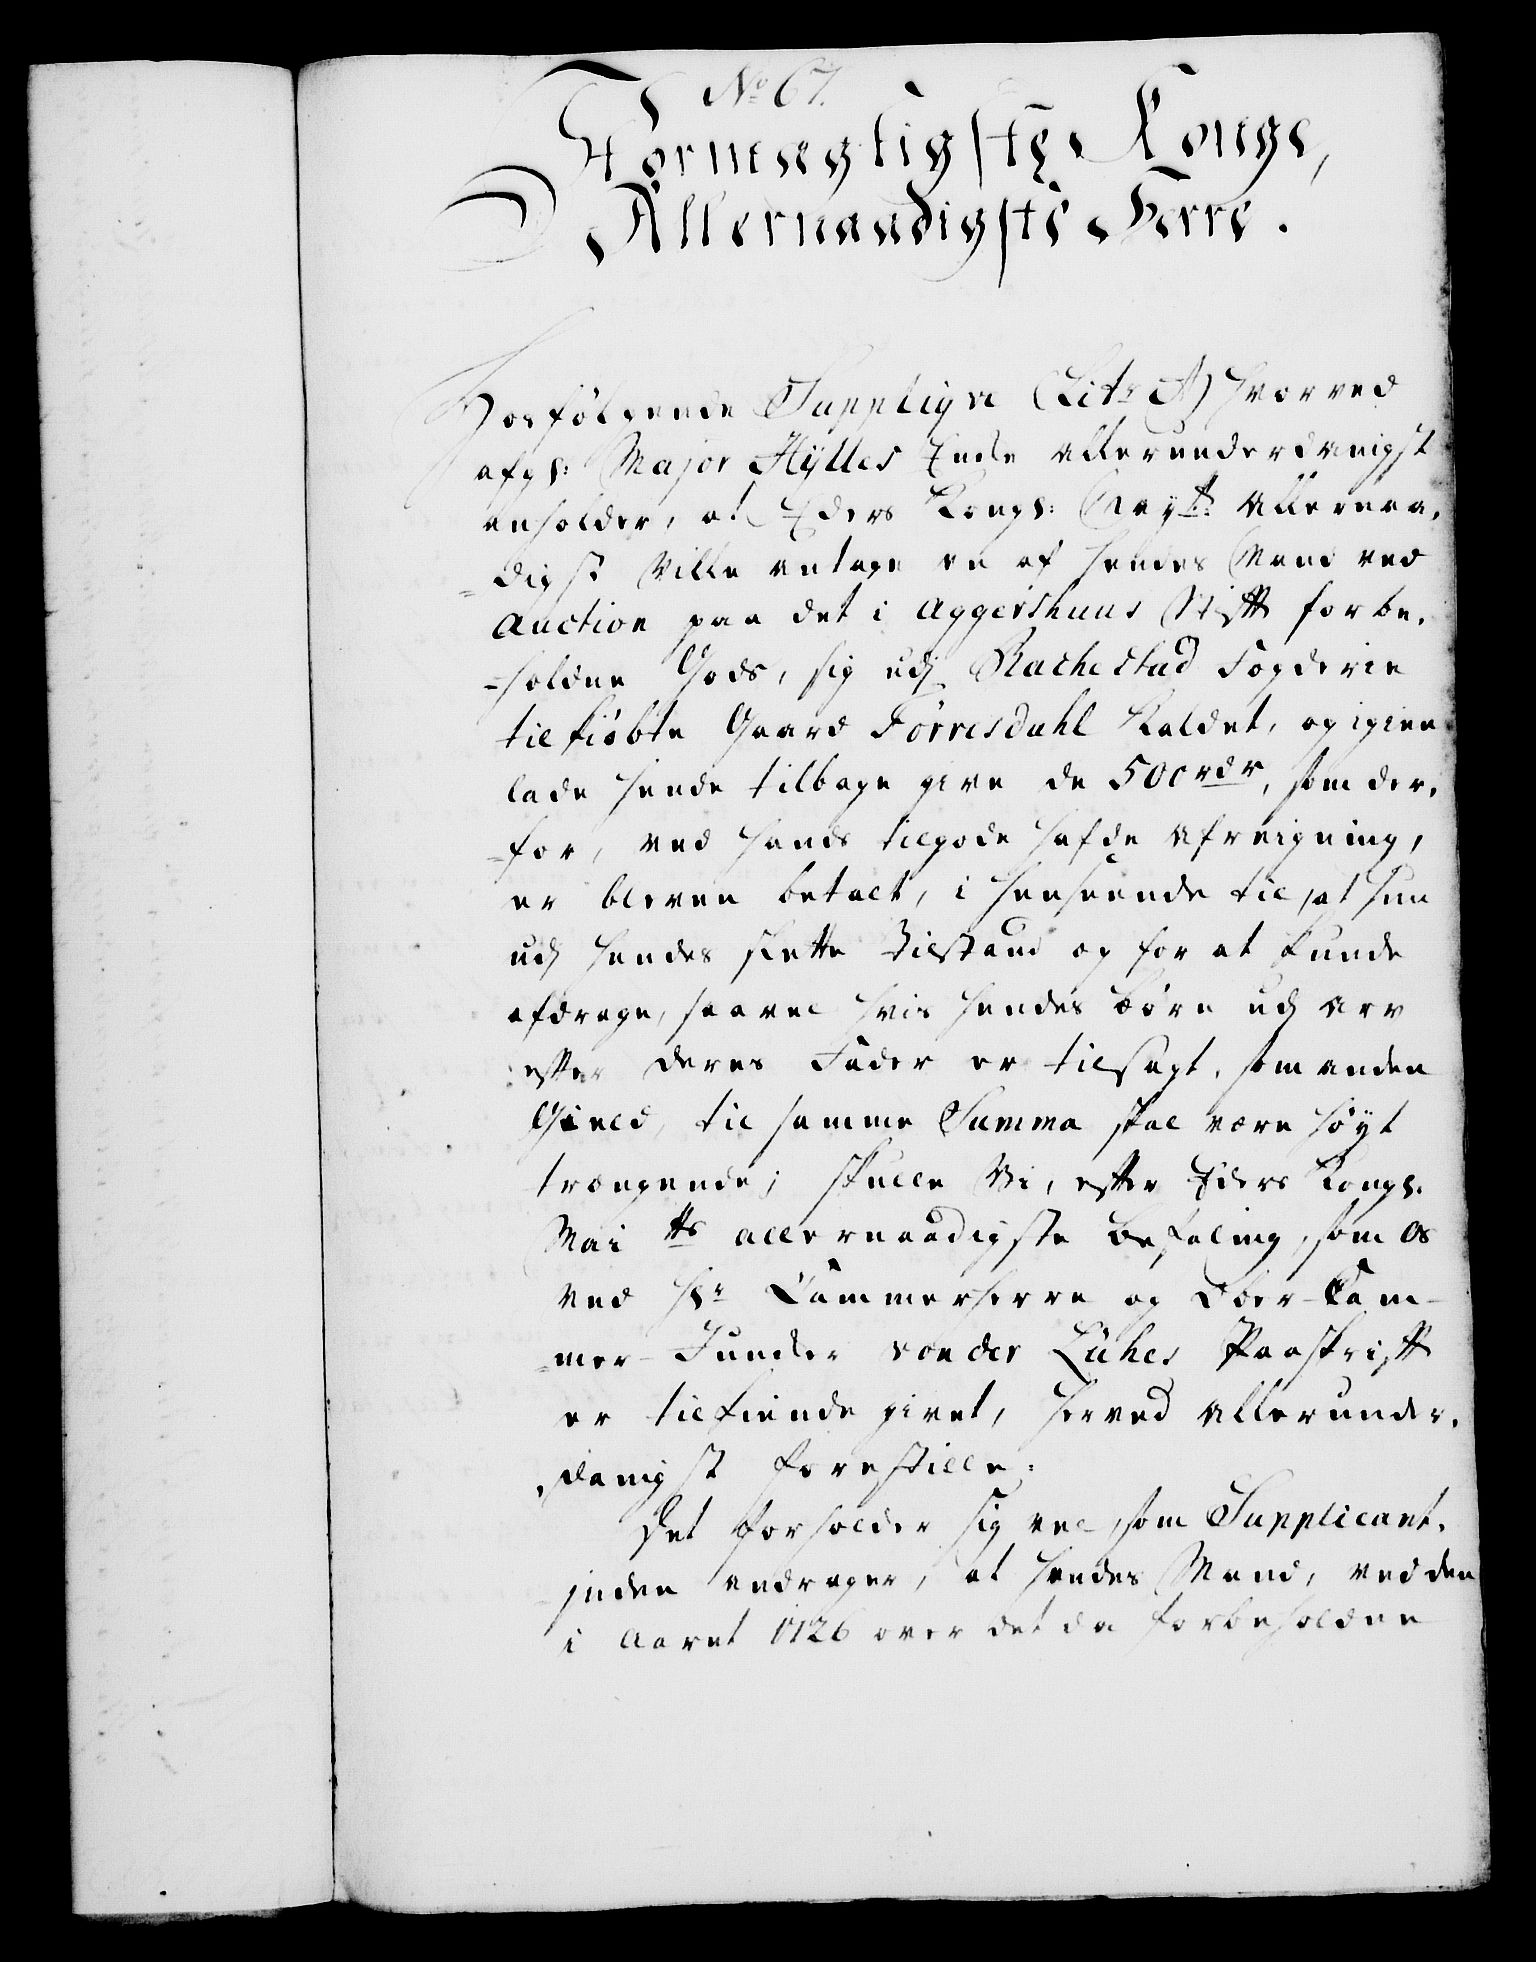 No 67.
Stormægtigste Konge,
Allernaadigste Herre.
Hosfølgende Suppliqve (Litr A) hvorved
afg: Major Hylles Enke allerunderdanigst
anholder, at Eders Kongl: Mayt: allernaa-
digst ville antage en af hendes Mand ved
Auction paa det i Aggershuus Stifft forbe-
-holdne Gods, sig udj Rachestad Fogderie
tilkiøbte Gaard Førresdahl kaldet, og igien
lade hende tilbage give de 500 rdr, som der-
-for, ved hands tilgode hafde Afreigning,
er bleven betalt, i henseende til, at hun
udj hendes slette Tilstand og for at kunde
afdrage, saavel hvis hendes Børn udj Arv
efter deres Fader er tilsagt, som anden
Gield, til samme Summa skal være høyt
trængende; skulle Vi, efter Eders Kongl.
Maitts allernaadigste Befaling, som Os
ved Hr Cammerherre og Ober-Kam-
-mer-Juncker von der Lühes Paaskrifft
er tilkiende givet, herved allerunder-
danigst forestille:
Det forholder sig vel, som Supplicant-
inden andrager, at hendes Mand, ved den
i Aaret 1726 over det da forbeholdne